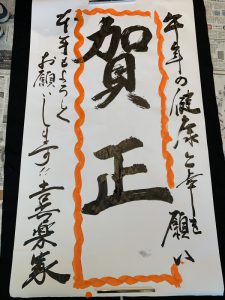 午年の健康と幸を願い
賀正
本年もよろしく
お願いします!!
喜楽家